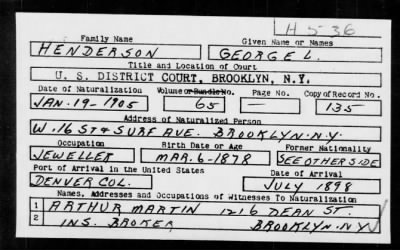 H 536
Family Name Given Name or Names
HENDERSON GEORGE L.
Title and Location of Court
U. S. DISTRICT COURT, BROOKLYN, N.Y.
Date of Naturalization Volume or Bundle No. Page No. Copy of Record No.
JAN. 19-1905 65 — 135
Address of Naturalized Person
W. 16 ST & SURF AVE. BROOKLYN. N.Y.
Occupation Birth Date or Age Former Nationality
JEWELLER MAR. 6-1878 SEE OTHER SIDE
Port of Arrival in the United States Date of Arrival
DENVER COL. JULY 1898
Names, Addresses and Occupations of Witnesses To Naturalization
1 ARTHUR MARTIN 1216 DEAN ST.
2 INS. BROKER BROOKLYN. N.Y.